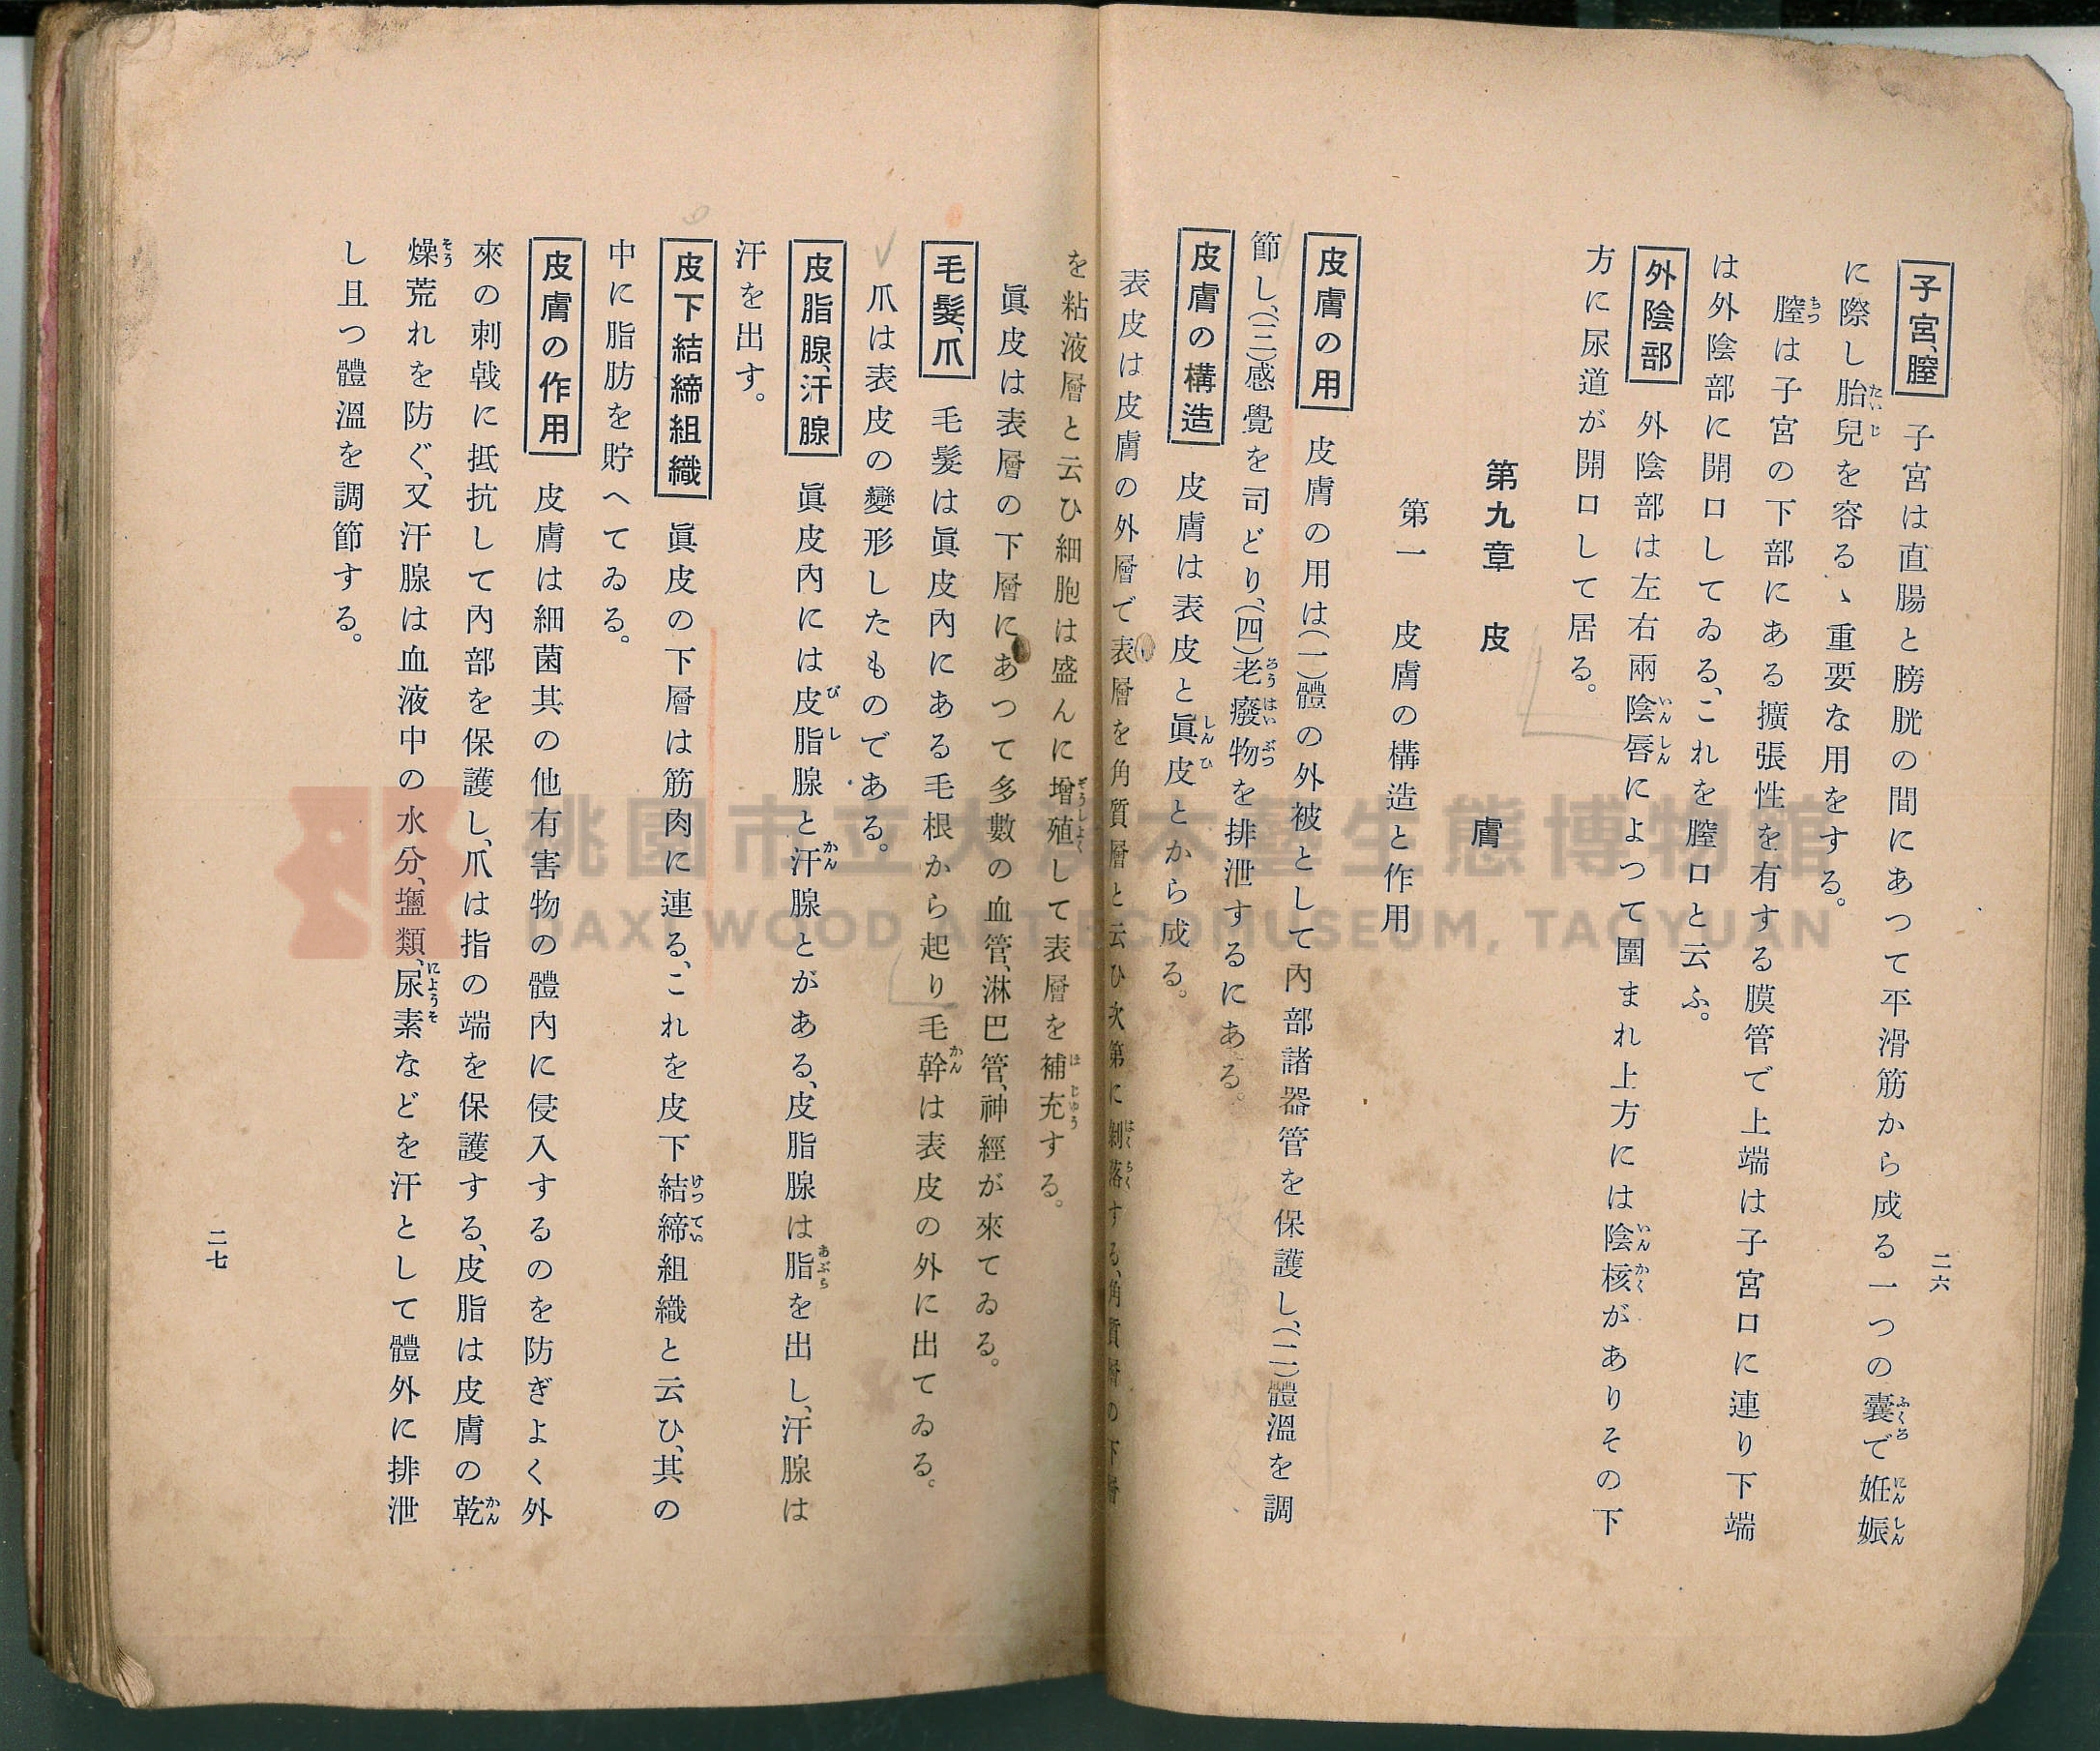 二六
子宮、膣 子宮は直腸と膀胱の間にあつて平滑筋から成る一つの囊で姙娠
に際し胎兒を容るゝ重要な用をする。
膣は子宮の下部にある擴張性を有する膜管で上端は子宮口に連り下端
は外陰部に開口してゐる、これを膣口と云ふ。
外陰部 外陰部は左右兩陰唇によつて圍まれ上方には陰核がありその下
方に尿道が開口して居る。
第九章 皮膚
第一 皮膚の構造と作用
皮膚の用 皮膚の用は(一)體の外被として內部諸器管を保護し、(二)體溫を調
節し、(三)感覺を司どり、(四)老癈物を排泄するにある。
皮膚の構造 皮膚は表皮と眞皮とから成る。
表皮は皮膚の外層で表層を角質層と云ひ次第に剝落する、角質層の下層
を粘液層と云ひ細胞は盛んに增殖して表層を補充する。
眞皮は表層の下層にあつて多數の血管、淋巴管、神經が來てゐる。
毛髮、爪 毛髮は眞皮內にある毛根から起り毛幹は表皮の外に出てゐる。
爪は表皮の變形したものである。
皮脂腺、汗腺 眞皮內には皮脂腺と汗腺とがある、皮脂腺は脂を出し、汗腺は
汗を出す。
皮下結締組織 眞皮の下層は筋肉に連る、これを皮下結締組織と云ひ、其の
中に脂肪を貯へてゐる。
皮膚の作用 皮膚は細菌其の他有害物の體內に侵入するのを防ぎよく外
來の刺戟に抵抗して內部を保護し、爪は指の端を保護する、皮脂は皮膚の乾
燥荒れを防ぐ、又汗腺は血液中の水分、鹽類、尿素などを汗として體外に排泄
し且つ體溫を調節する。
二七
桃園市立大溪木藝生態博物館
DAXI WOOD ART ECOMUSEUM, TAOYUAN